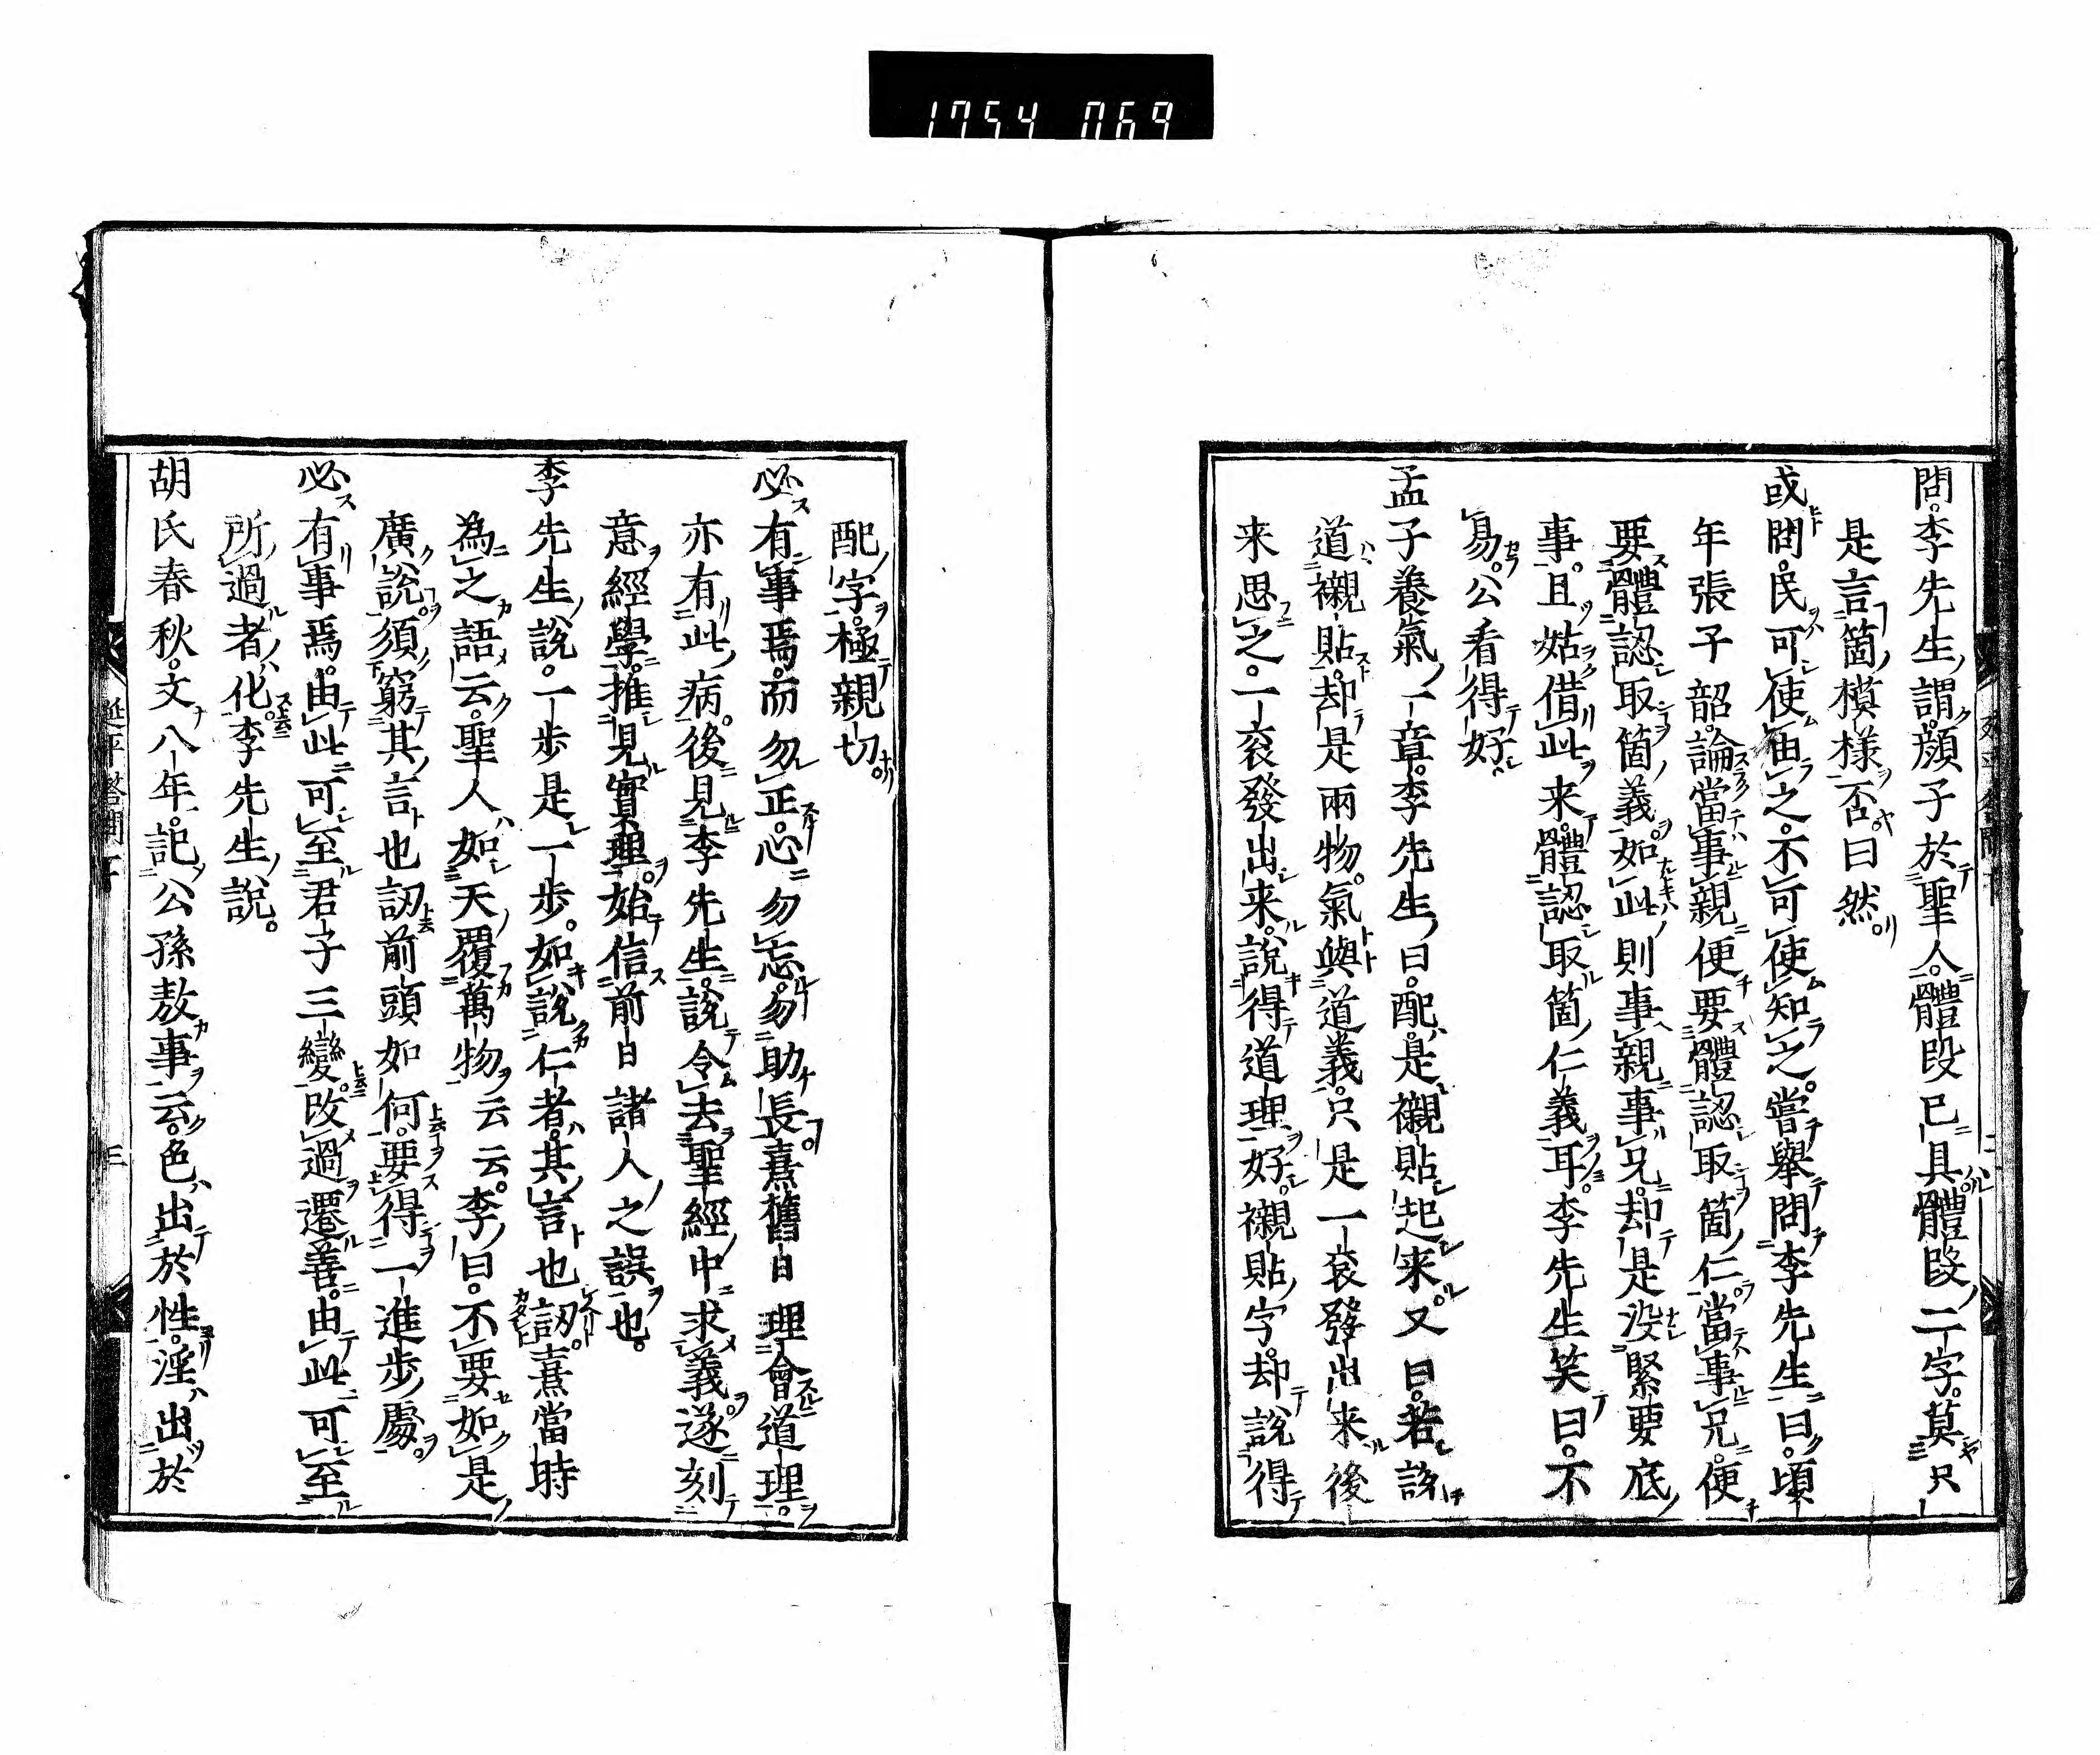 1754 069
問李先生謂顔子於聖人體段已具體段二字莫只
是言箇模様否曰然
或問民可使由之不可使知之嘗舉問李先生曰頃
年張子韶論當事親便要體認取箇仁當事兄便
要體認取箇義如此則事親事兄却是没緊要底
事且姑借此来體認取箇仁義耳李先生笑曰不
易公看得好
孟子養氣一章李先生曰配是襯貼起来又曰若説
道襯貼却是兩物氣與道義只是一衮發出来後
来思之一衮發出来説得道理好襯貼字却説得
配字極親切
必有事焉而勿正心勿忘勿助長熹舊日理會道理
亦有此病後見李先生説令去聖經中求義遂刻
意經學推見實理始信前日諸人之誤也
李先生説一步是一步如説仁者其言也訒熹當時
為之語云聖人如天覆萬物云云李曰不要如是
廣説須窮其言也訒前頭如何要得一進步處
必有事焉由此可至君子三變改過遷善由此可至
所過者化李先生説
胡氏春秋文八年記公孫敖事云色出於性淫出於
延平答問下
三